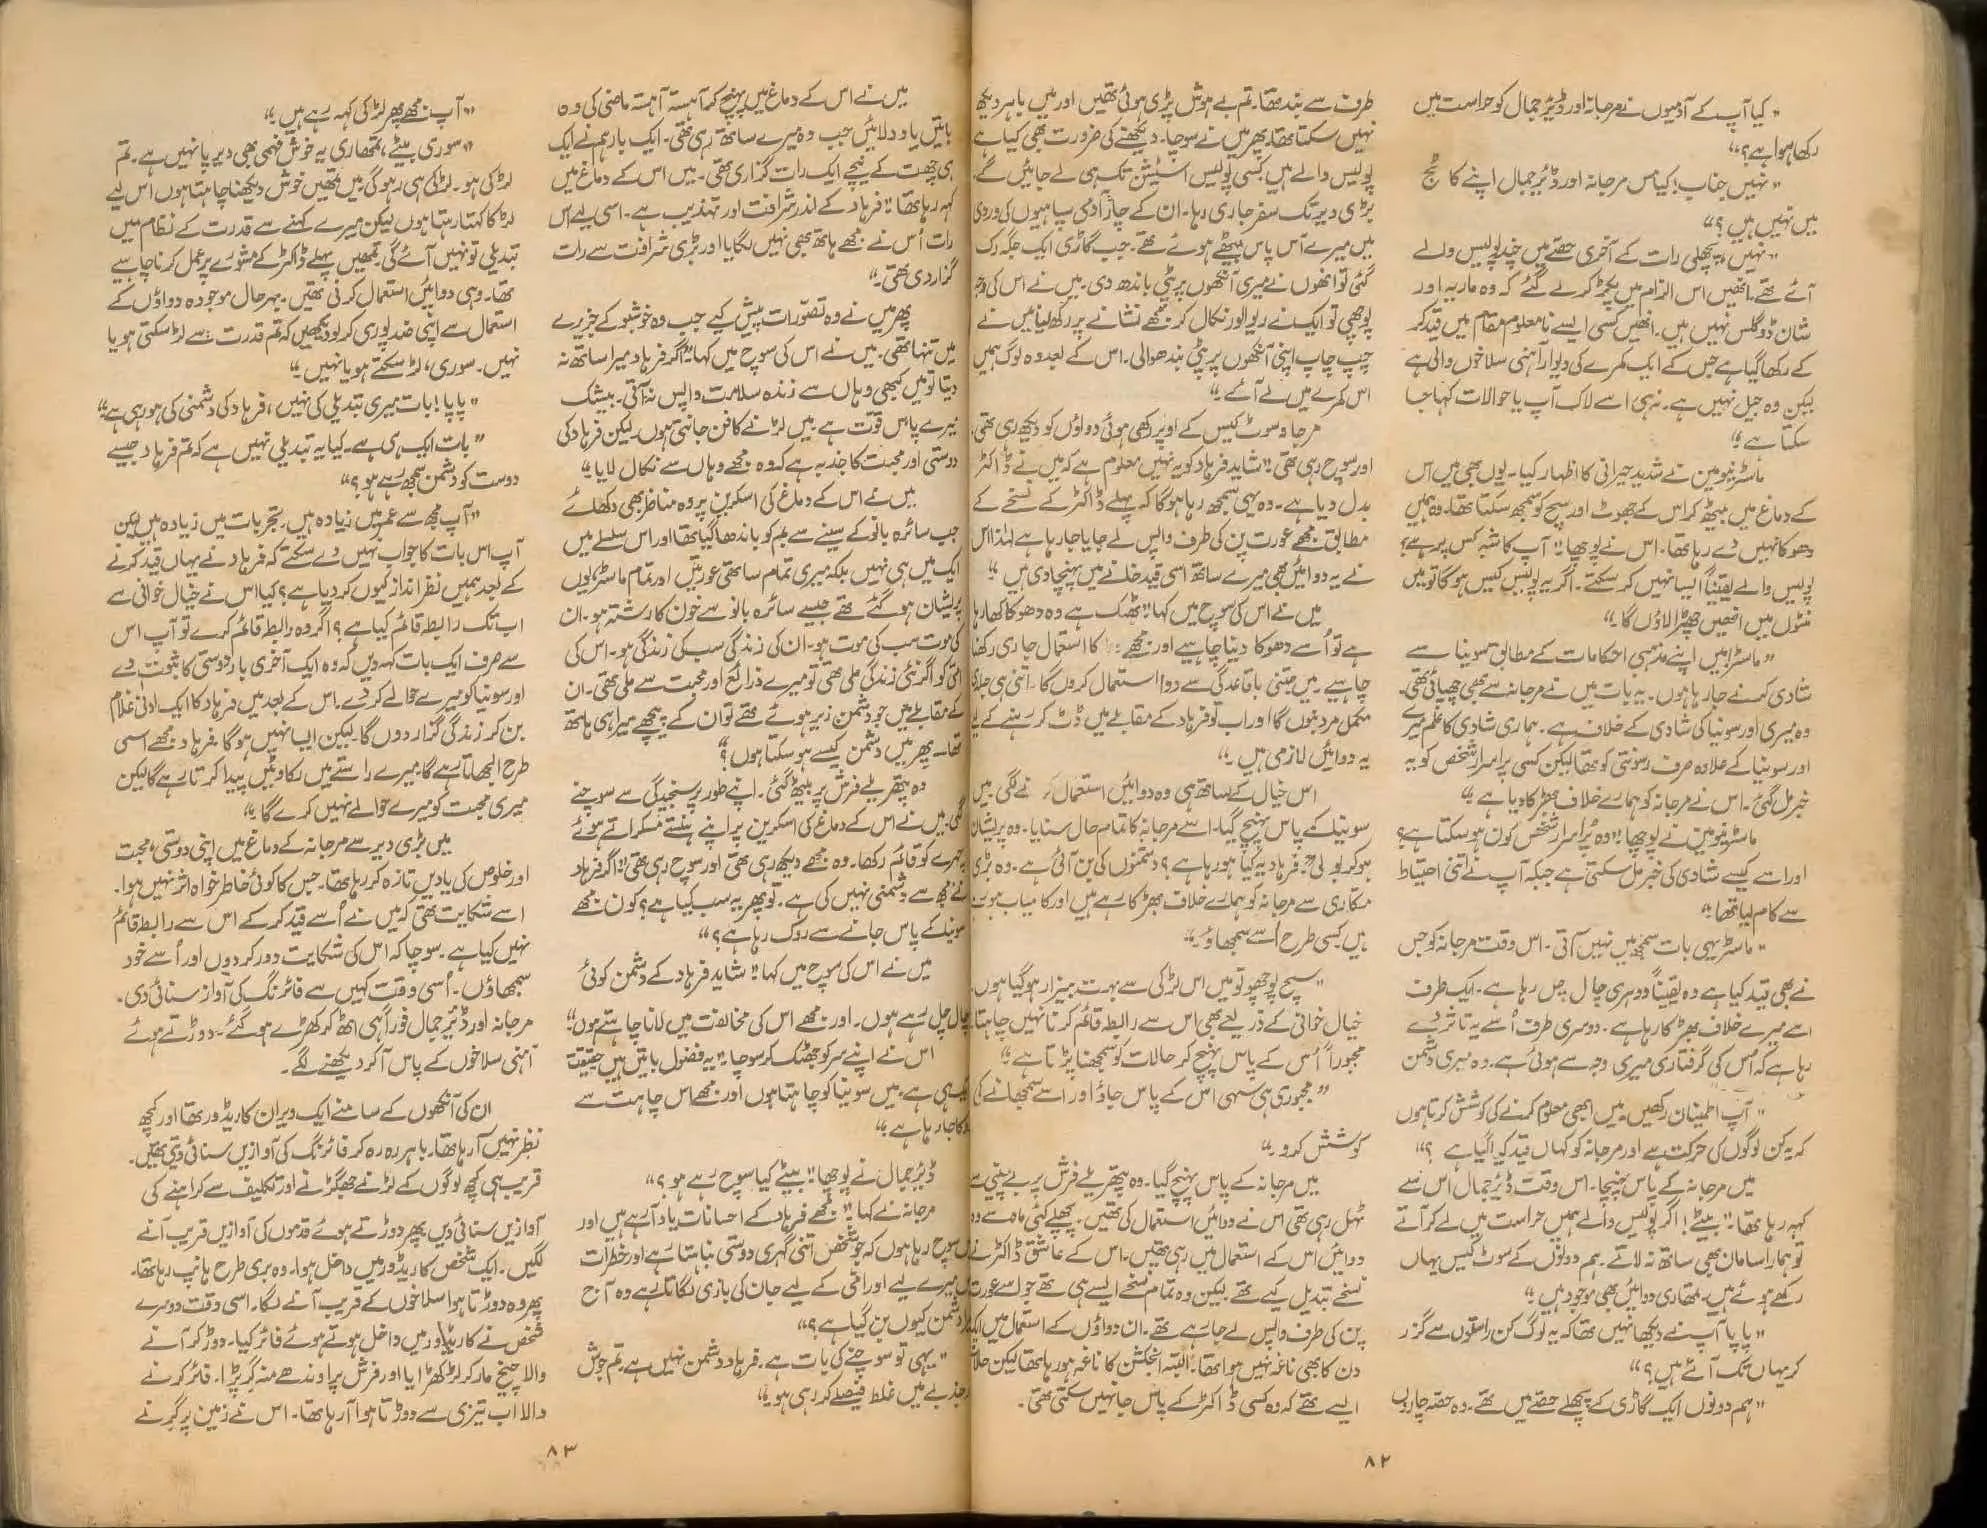 "کیا آپ کے آدمیوں نے مرجانہ اور ڈیئر جمال کو حراست میں
رکھا ہوا ہے؟"
"نہیں جناب! کیا مس مرجانہ اور ڈیئر جمال اپنے کاٹج
میں نہیں ہیں؟"
"نہیں، پچھلی رات کے آخری حصّے میں چند پولیس والے
آئے تھے۔ انھیں اس الزام میں پکڑ کر لے گئے کہ وہ ماریہ اور
شان ڈوگلس نہیں ہیں۔ انھیں کسی ایسے نامعلوم مقام میں قید کر
کے رکھا گیا ہے جس کے ایک کمرے کی دیوار آہنی سلاخوں والی ہے
لیکن وہ جیل نہیں ہے۔ نہ ہی اسے لاک آپ یا حوالات کہا جا
سکتا ہے۔"
ماسٹر نیومین نے شدید حیرانی کا اظہار کیا۔ یوں بھی میں اس
کے دماغ میں بیٹھ کر اس کے جھوٹ اور سچ کو سمجھ سکتا تھا۔ وہ ہمیں
دھوکا نہیں دے رہا تھا۔ اس نے پوچھا "آپ کا شبہ کس پر ہے؟
پولیس والے یقیناً ایسا نہیں کر سکتے۔ اگر یہ پولیس کیس ہو گا تو میں
منٹوں میں انھیں چھڑا لاؤں گا۔"
"ماسٹر! میں اپنے مذہبی احکامات کے مطابق سونیا سے
شادی کرنے جا رہا ہوں۔ یہ بات میں نے مرجانہ سے بھی چھپائی تھی۔
وہ میری اور سونیا کی شادی کے خلاف ہے۔ ہماری شادی کا علم میرے
اور سونیا کے علاوہ صرف رسونتی کو تھا لیکن کسی پراسرار شخص کو یہ
خبر مل گئی۔ اس نے مرجانہ کو ہمارے خلاف بھڑکا دیا ہے۔"
ماسٹر نیومین نے پوچھا "وہ پُراسرار شخص کون ہو سکتا ہے؟
اور اسے کیسے شادی کی خبر مل سکتی ہے جبکہ آپ نے اتنی احتیاط
سے کام لیا تھا۔"
"ماسٹر یہی بات سمجھ میں نہیں آتی۔ اس وقت مرجانہ کو جس
نے بھی قید کیا ہے وہ یقیناً دوہری چال چل رہا ہے۔ ایک طرف
اسے میرے خلاف بھڑکا رہا ہے۔ دوسری طرف اُسے یہ تاثر دے
رہا ہے کہ اُس کی گرفتاری میری وجہ سے ہوئی ہے۔ وہ میری دشمن
"آپ اطمینان رکھیں۔ میں ابھی معلوم کرنے کی کوشش کرتا ہوں
کہ یہ کن لوگوں کی حرکت ہے اور مرجانہ کو کہاں قید کیا گیا ہے؟"
میں مرجانہ کے پاس پہنچا۔ اس وقت ڈیئر جمال اس سے
کہہ رہا تھا۔ "بیٹے! اگر پولیس والے ہمیں حراست میں لے کر آتے
تو ہمارا سامان بھی ساتھ نہ لاتے۔ ہم دونوں کے سوٹ کیس یہاں
رکھے ہوئے ہیں۔ تمھاری دوائیں بھی موجود ہیں۔"
"پاپا آپ نے دیکھا نہیں تھا کہ یہ لوگ کن راستوں سے گزر
کر یہاں تک آئے ہیں؟"
"ہم دونوں ایک گاڑی کے پچھلے حصّے میں تھے۔ وہ حصّہ چاروں
طرف سے بند تھا۔ تم بے ہوش پڑی ہوئی تھیں اور میں باہر دیکھ
نہیں سکتا تھا۔ پھر میں نے سوچا۔ دیکھنے کی ضرورت بھی کیا ہے
پولیس والے ہیں کسی پولیس اسٹیشن تک ہی لے جائیں گے۔
بڑی دیر تک سفر جاری رہا۔ ان کے چار آدمی سپاہیوں کی وردی
میں میرے آس پاس بیٹھے ہوئے تھے۔ جب گاڑی ایک جگہ رک
گئی تو انھوں نے میری آنکھوں پر پٹی باندھ دی۔ میں نے اس کی وجہ
پوچھی تو ایک نے ریوالور نکال کر مجھے نشانے پر رکھ لیا میں نے
چپ چاپ اپنی آنکھوں پر پٹی بندھوالی۔ اس کے بعد وہ لوگ ہمیں
اس کمرے میں لے آئے۔"
مرجانہ سوٹ کیس کے اوپر رکھی ہوئی دواؤں کو دیکھ رہی تھی
اور سوچ رہی تھی "شاید فرہاد کو یہ نہیں معلوم ہے کہ میں نے ڈاکٹر
بدل دیا ہے۔ وہ یہی سمجھ رہا ہو گا کہ پہلے ڈاکٹر کے نسخے کے
مطابق مجھے عورت پن کی طرف واپس لے جایا جا رہا ہے لہٰذا اس
نے یہ دوائیں بھی میرے ساتھ اسی قید خانے میں پہنچا دی ہیں۔"
میں نے اس کی سوچ میں کہا "ٹھیک ہے وہ دھوکا کھا رہا
ہے تو اُسے دھوکا دینا چاہیے اور مجھے کا استعمال جاری رکھنا
چاہیے۔ میں جتنی باقاعدگی سے دوا استعمال کروں گا۔ اتنی ہی جلد
مکمل مرد بنوں گا اور اب تو فرہاد کے مقابلے میں ڈٹ کر رہنے کے
یہ دوائیں لازمی ہیں۔"
اس خیال کے ساتھ ہی وہ دوائیں استعمال نے لگی۔ میں
سونیا کے پاس پہنچ گیا۔ اسے مرجانہ کا تمام حال سنایا۔ وہ پریشان
ہو کر بولی "فرہاد یہ کیا ہو رہا ہے؟ دشمنوں کی بن آئی ہے۔ وہ بڑی
مکاری سے مرجانہ کو ہمارے خلاف بھڑکا رہے ہیں اور کامیاب ہو رہے
ہیں کسی طرح اُسے سمجھاؤ۔"
"سچ پوچھو تو میں اس لڑکی سے بہت بیزار ہو گیا ہوں۔
خیال خوانی کے ذریعے بھی اس سے رابطہ قائم کرنا نہیں چاہتا
مجبوراً اُس کے پاس پہنچ کر حالات کو سمجھنا پڑتا ہے۔"
"مجبوری ہی سہی اس کے پاس جاؤ اور اسے سمجھانے کی
کوشش کرو۔"
میں مرجانہ کے پاس پہنچ گیا۔ وہ پتھریلے فرش پر بے چینی سے
ٹہل رہی تھی اس نے دوائیں استعمال کی تھیں۔ پچھلے کئی ماہ سے وہ
دوائیں اس کے استعمال میں رہی تھیں۔ اس کے عاشق ڈاکٹر نے
نسخے تبدیل کیے تھے لیکن وہ تمام نسخے ایسے ہی تھے جو اسے عورت
پن کی طرف واپس لے جا رہے تھے۔ ان دواؤں کے استعمال میں ایک
دن کا بھی ناغہ نہیں ہوا تھا۔ البتہ انجکشن کا ناغہ ہو رہا تھا لیکن حالات
ایسے تھے کہ وہ کسی ڈاکٹر کے پاس جا نہیں سکتی تھی۔
۸۲
میں نے اس کے دماغ میں پہنچ کر آہستہ آہستہ ماضی کی وہ
باتیں یاد دلائیں جب وہ میرے ساتھ رہی تھی۔ ایک بار ہم نے ایک
ہی چھت کے نیچے ایک رات گذاری تھی۔ میں اس کے دماغ میں
کہہ رہا تھا "فرہاد کے اندر شرافت اور تہذیب ہے۔ اسی لیے اس
رات اُس نے مجھے ہاتھ بھی نہیں لگایا اور بڑی شرافت سے رات
گزار دی تھی۔"
پھر میں نے وہ تصورات پیش کیے جب وہ خوشبو کے جزیرے
میں تنہا تھی۔ میں نے اس کی سوچ میں کہا "اگر فرہاد میرا ساتھ نہ
دیتا تو میں کبھی وہاں سے زندہ سلامت واپس نہ آتی۔ بیشک
میرے پاس قوت ہے۔ میں لڑنے کا فن جانتی ہوں لیکن فرہاد کی
دوستی اور محبت کا جذبہ ہے کہ وہ مجھے وہاں سے نکال لایا۔"
میں نے اس کے دماغ کی اسکرین پر وہ مناظر بھی دکھلائے
جب سائرہ بانو کے سینے سے بم کو باندھا گیا تھا اور اس سلسلے میں
ایک میں ہی نہیں بلکہ میری تمام ساتھی عورتیں اور تمام ماسٹر یوں
پریشان ہو گئے تھے جیسے سائرہ بانو سے خون کا رشتہ ہو۔ ان
کی موت سب کی موت ہو۔ ان کی زندگی سب کی زندگی ہو۔ اس کی
امی کو اگر نئی زندگی ملی تھی تو میرے ذرائع اور محبت سے ملی تھی۔ ان
کے مقابلے میں جو دشمن زیر ہوئے تھے تو ان کے پیچھے میرا ہی ہاتھ
تھا۔ پھر میں دشمن کیسے ہو سکتا ہوں؟"
وہ پتھریلے فرش پر بیٹھ گئی۔ اپنے طور پر سنجیدگی سے سوچنے
لگی۔ میں نے اس کے دماغ کی اسکرین پر اپنے ہنستے مسکراتے ہوئے
چہرے کو قائم رکھا۔ وہ مجھے دیکھ رہی تھی اور سوچ رہی تھی "اگر فرہاد
نے مجھ سے دشمنی نہیں کی ہے۔ تو پھر یہ سب کیا ہے؟ کون مجھے
سونیا کے پاس جانے سے روک رہا ہے؟"
میں نے اس کی سوچ میں کہا "شاید فرہاد کے دشمن کوئی
چال چل رہے ہوں۔ اور مجھے اس کی مخالفت میں لانا چاہتے ہوں"
اس نے اپنے سر کو جھٹک کر سوچا "یہ فضول باتیں ہیں حقیقت
یہ ہی ہے۔ میں سونیا کو چاہتا ہوں اور مجھے اس چاہت سے
روکا جا رہا ہے۔"
ڈیئر جمال نے پوچھا "بیٹے کیا سوچ رہے ہو؟"
مرجانہ نے کہا "مجھے فرہاد کے احسانات یاد آ رہے ہیں اور
میں سوچ رہا ہوں کہ جو شخص اتنی گہری دوستی نباہتا رہے اور خطرات
میں میرے لیے اور امی کے لیے جان کی بازی لگاتا رہے وہ آج
دشمن کیوں بن گیا ہے؟"
"یہی تو سوچنے کی بات ہے۔ فرہاد دشمن نہیں ہے۔ تم جوش
و جذبے میں غلط فیصلے کر رہی ہو۔"
"آپ مجھے پھر لڑکی کہہ رہے ہیں۔"
"سوری بیٹے، تمھاری یہ خوش فہمی بھی دیرپا نہیں ہے۔ تم
لڑکی ہو۔ لڑکی ہی رہو گی۔ میں تمھیں خوش دیکھنا چاہتا ہوں اس لیے
لڑکا کہتا رہتا ہوں لیکن میرے کہنے سے قدرت کے نظام میں
تبدیلی تو نہیں آئے گی۔ تمھیں پہلے ڈاکٹر کے مشورے پر عمل کرنا چاہیے
تھا۔ وہی دوائیں استعمال کرنی تھیں۔ بہرحال موجودہ دواؤں کے
استعمال سے اپنی ضد پوری کر لو دیکھیں کہ تم قدرت سے لڑ سکتی ہو یا
نہیں۔ سوری، لڑ سکتے ہو یا نہیں۔"
"پاپا! بات میری تبدیلی کی نہیں، فرہاد کی دشمنی کی ہو رہی ہے"
"بات ایک ہی ہے۔ کیا یہ تبدیلی نہیں ہے کہ تم فرہاد جیسے
دوست کو دشمن سمجھ رہے ہو؟"
"آپ مجھ سے عمر میں زیادہ ہیں۔ تجربات میں زیادہ ہیں لیکن
آپ اس بات کا جواب نہیں دے سکتے کہ فرہاد نے یہاں قید کرنے
کے بعد ہمیں نظرانداز کیوں کر دیا ہے؟ کیا اس نے خیال خوانی سے
اب تک رابطہ قائم کیا ہے؟ اگر وہ رابطہ قائم کرے تو آپ اس
سے صرف ایک بات کہہ دیں کہ وہ ایک آخری بار دوستی کا ثبوت دے
اور سونیا کو میرے حوالے کر دے۔ اس کے بعد میں فرہاد کا ایک ادنیٰ غلام
بن کر زندگی گزار دوں گا۔ لیکن ایسا نہیں ہو گا۔ فرہاد مجھے اسی
طرح الجھاتا رہے گا۔ میرے راستے میں رکاوٹیں پیدا کرتا رہے گا لیکن
میری محبت کو میرے حوالے نہیں کرے گا۔"
میں بڑی دیر سے مرجانہ کے دماغ میں اپنی دوستی، محبت
اور خلوص کی یادیں تازہ کر رہا تھا۔ جس کا کوئی خاطر خواہ اثر نہیں ہوا۔
اسے شکایت تھی کہ میں نے اُسے قید کر کے اس سے رابطہ قائم
نہیں کیا ہے۔ سوچا کہ اس کی شکایت دور کر دوں اور اُسے خود
سمجھاؤں۔ اُسی وقت کہیں سے فائرنگ کی آواز سنائی دی۔
مرجانہ اور ڈیئر جمال فوراً ہی اٹھ کر کھڑے ہو گئے۔ دوڑتے ہوئے
آہنی سلاخوں کے پاس آ کر دیکھنے لگے۔
ان کی آنکھوں کے سامنے ایک ویران کاریڈور تھا اور کچھ
نظر نہیں آ رہا تھا۔ باہر رہ رہ کر فائرنگ کی آوازیں سنائی دیتی تھیں۔
قریب ہی کچھ لوگوں کے لڑنے جھگڑنے اور تکلیف سے کراہنے کی
آوازیں سنائی دیں پھر دوڑتے ہوئے قدموں کی آوازیں قریب آنے
لگیں۔ ایک شخص کاریڈور میں داخل ہوا۔ وہ بری طرح ہانپ رہا تھا۔
پھر وہ دوڑتا ہوا سلاخوں کے قریب آنے لگا۔ اسی وقت دوسرے
شخص نے کاریڈور میں داخل ہوتے ہوئے فائر کیا۔ دوڑ کر آنے
والا چیخ مار کر لڑکھڑایا اور فرش پر اوندھے منہ گر پڑا۔ فائر کرنے
والا اب تیزی سے دوڑتا ہوا آ رہا تھا۔ اس نے زمین پر گرنے
۸۳